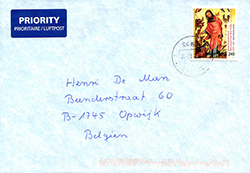 PRIORITY
PRIORITAIRE / LUFTPOST
240
Henri De Man
Bunderstraat 60
B-1745 Opwijk
Belgien